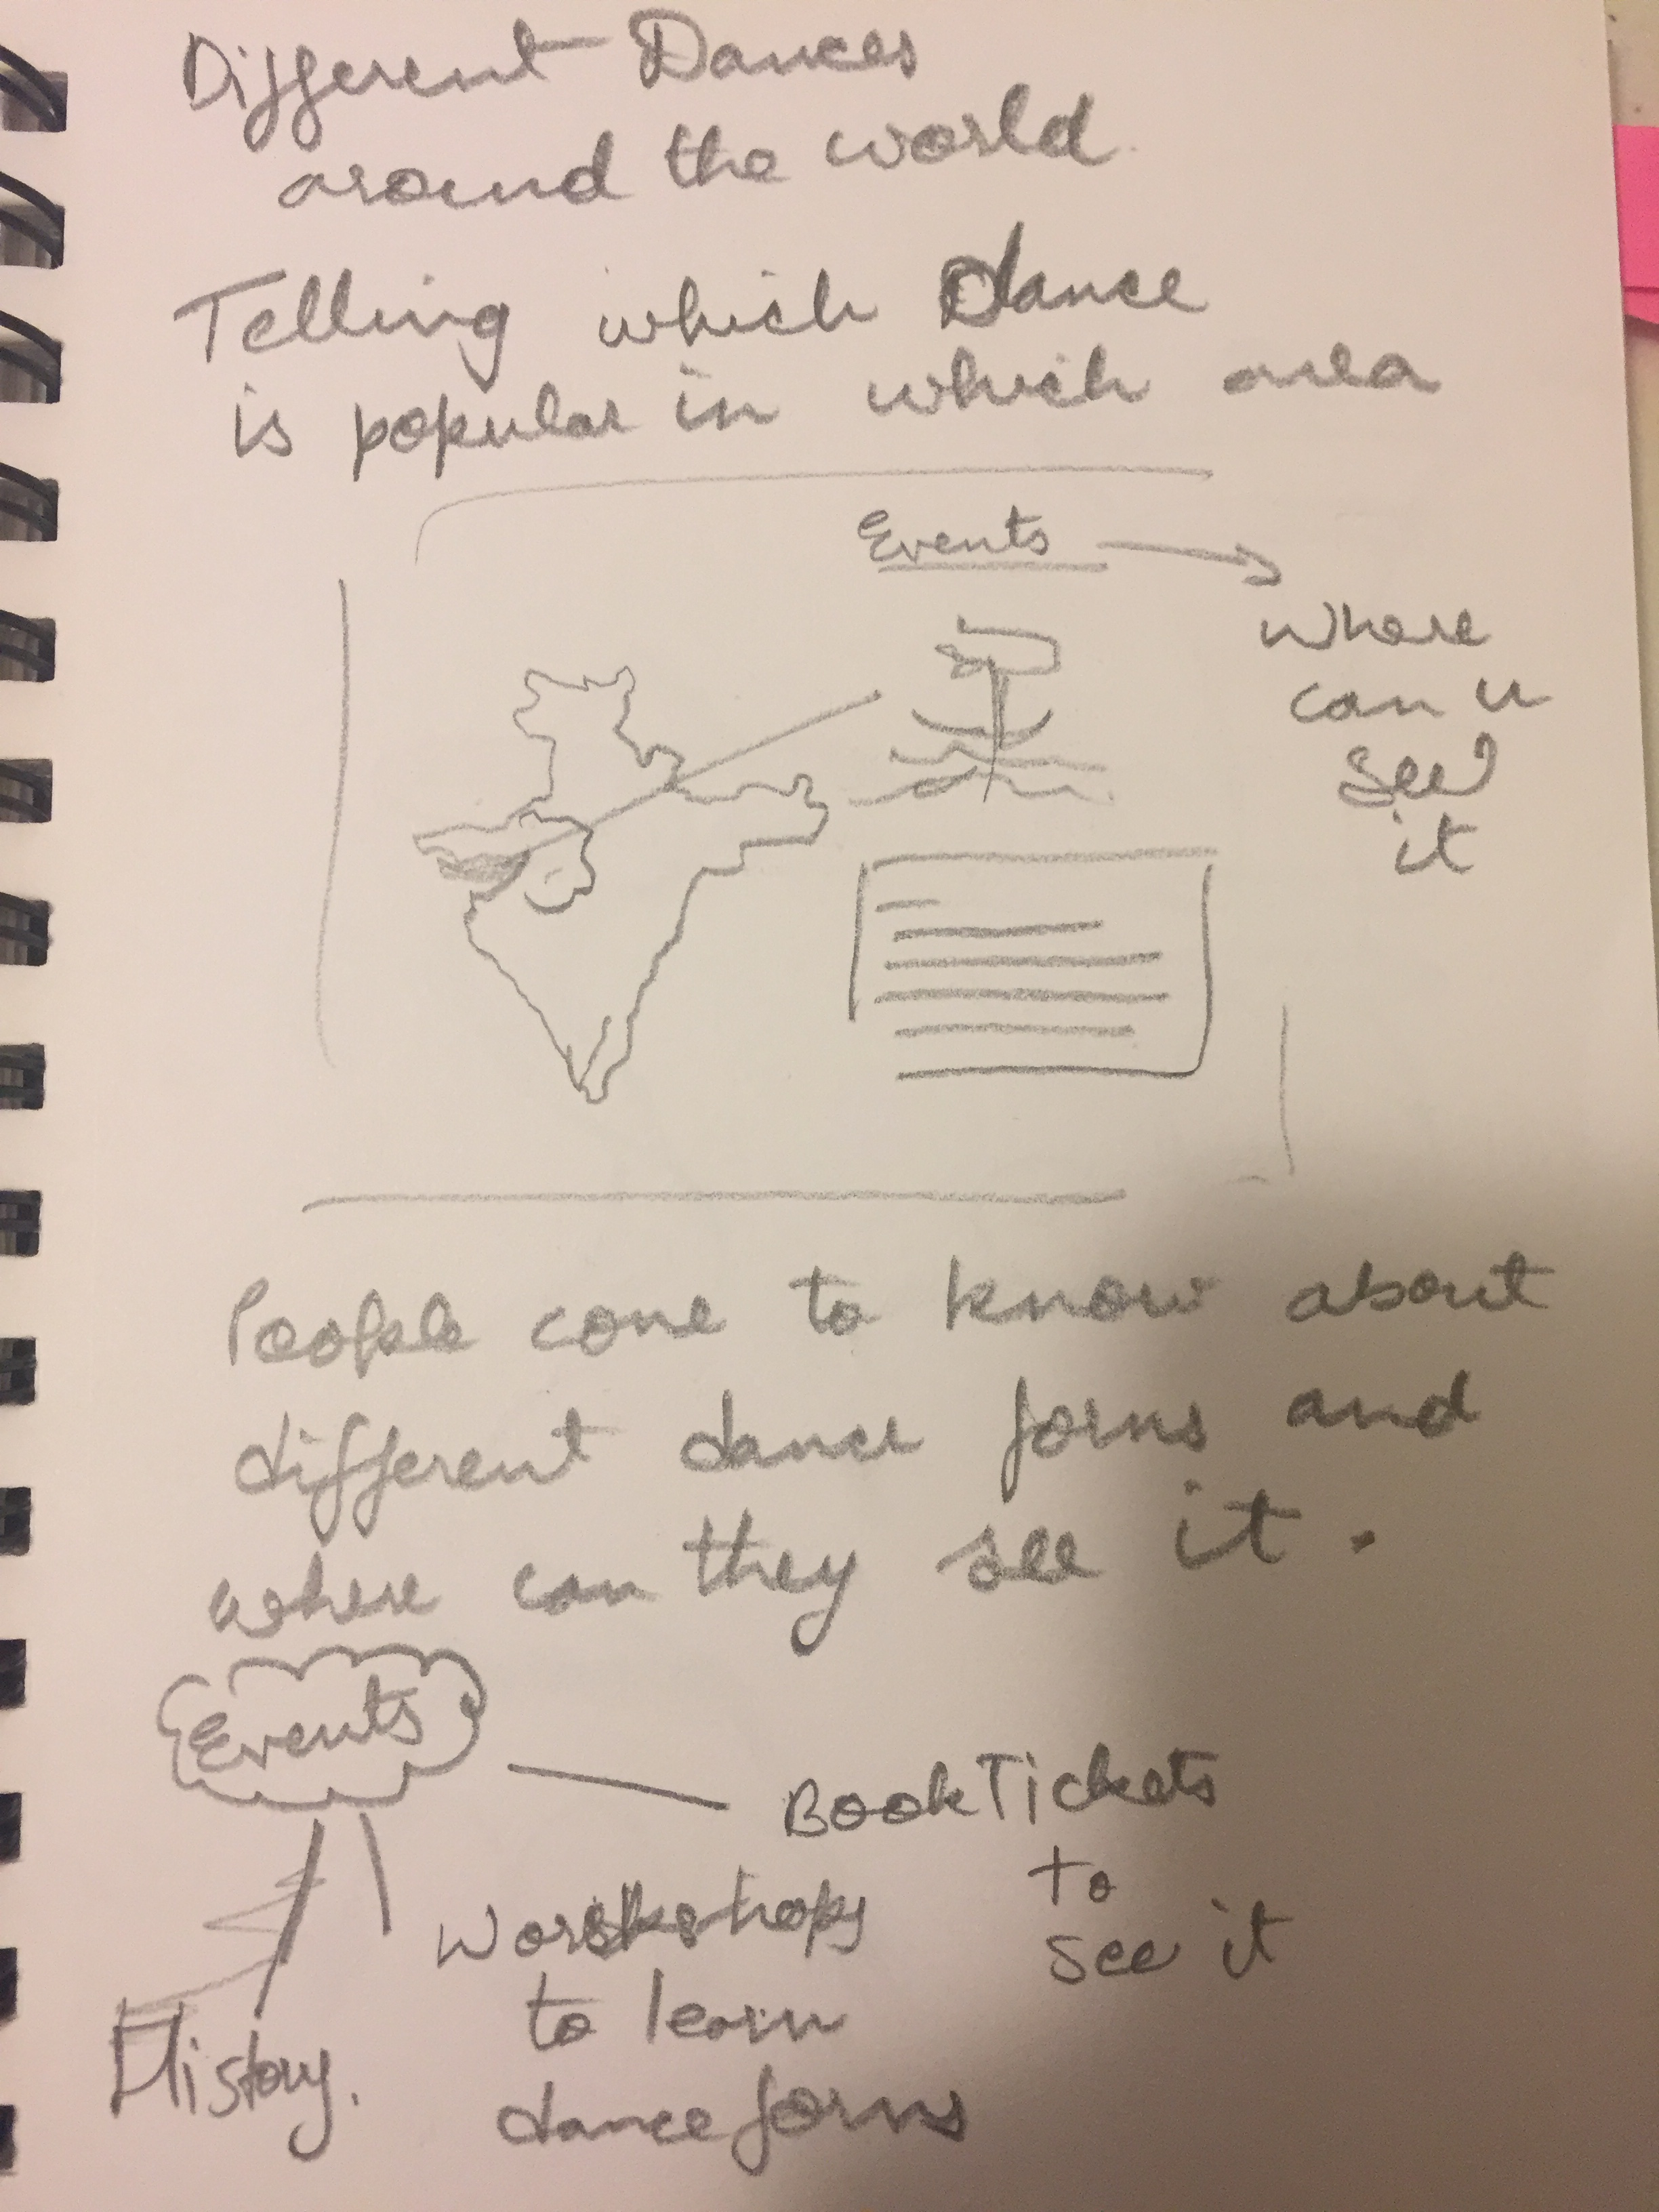 Different Dances
around the world.
Telling which Dance
is popular in which area
Events
where
can u
see
it
People come to know about
different dance forms and
where can they see it.
Events
Book Tickets
to
see it
Workshops
to learn
dance forms
History.